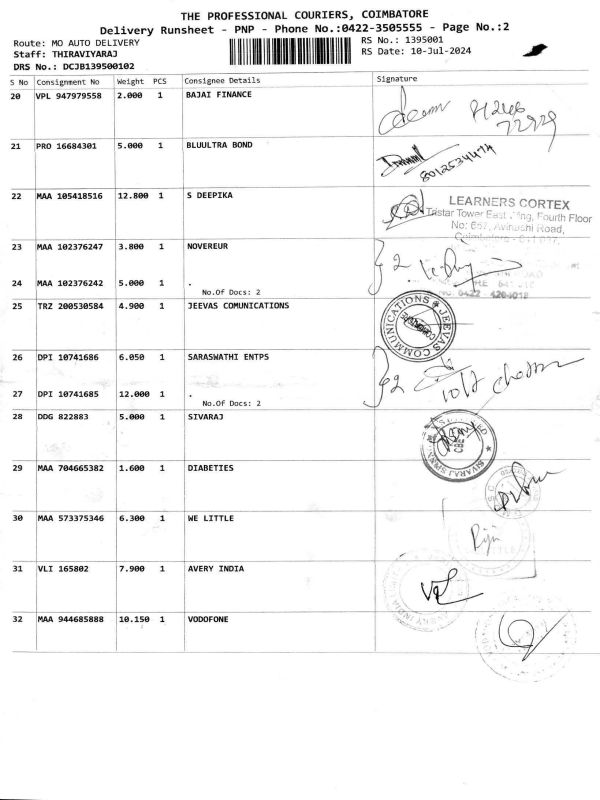 THE PROFESSIONAL COURIERS, COIMBATORE
Delivery Runsheet - PNP - Phone No.:0422-3505555 - Page No.:2
Route: MO AUTO DELIVERY
Staff: THIRAVIYARAJ
DRS No.: DCJB139500102
RS No.: 1395001
RS Date: 10-Jul-2024
S No Consignment No Weight PCS Consignee Details Signature
20 VPL 947979558 2.000 1 BAJAI FINANCE
21 PRO 16684301 5.000 1 BLUULTRA BOND
8012534474
22 MAA 105418516 12.800 1 S DEEPIKA
LEARNERS CORTEX
Tristar Tower East Wing, Fourth Floor
No: 657, Avinashi Road,
23 MAA 102376247 3.800 1 NOVEREUR
2
24 MAA 102376242 5.000 1 .
No.Of Docs: 2
25 TRZ 200530584 4.900 1 JEEVAS COMUNICATIONS
JEEVAS COMMUNICATIONS
26 DPI 10741686 6.050 1 SARASWATHI ENTPS
2
27 DPI 10741685 12.000 1 .
No.Of Docs: 2
28 DDG 822883 5.000 1 SIVARAJ
SIVARAJ
29 MAA 704665382 1.600 1 DIABETIES
30 MAA 573375346 6.300 1 WE LITTLE
31 VLI 165802 7.900 1 AVERY INDIA
32 MAA 944685888 10.150 1 VODOFONE